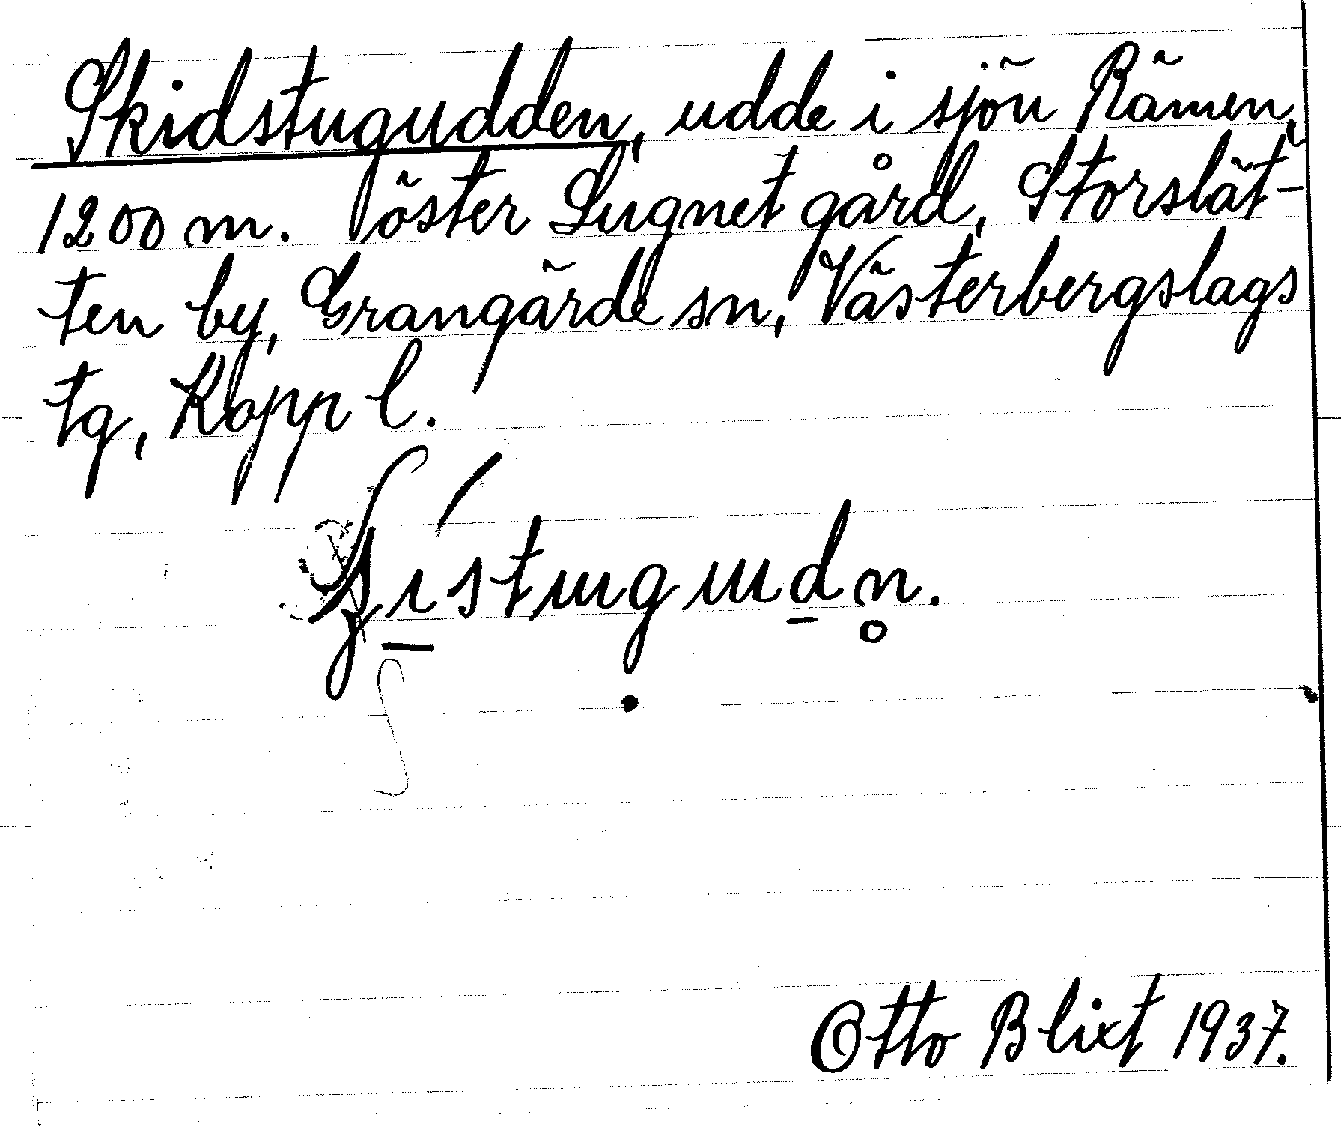 Skidstugudden, udde i sjön Rämen,
1200 m. öster Lugnet gård, Storslät-
ten by, Grangärde sn, Västerbergslags
tg, Kopp l.
Otto Blixt 1937.